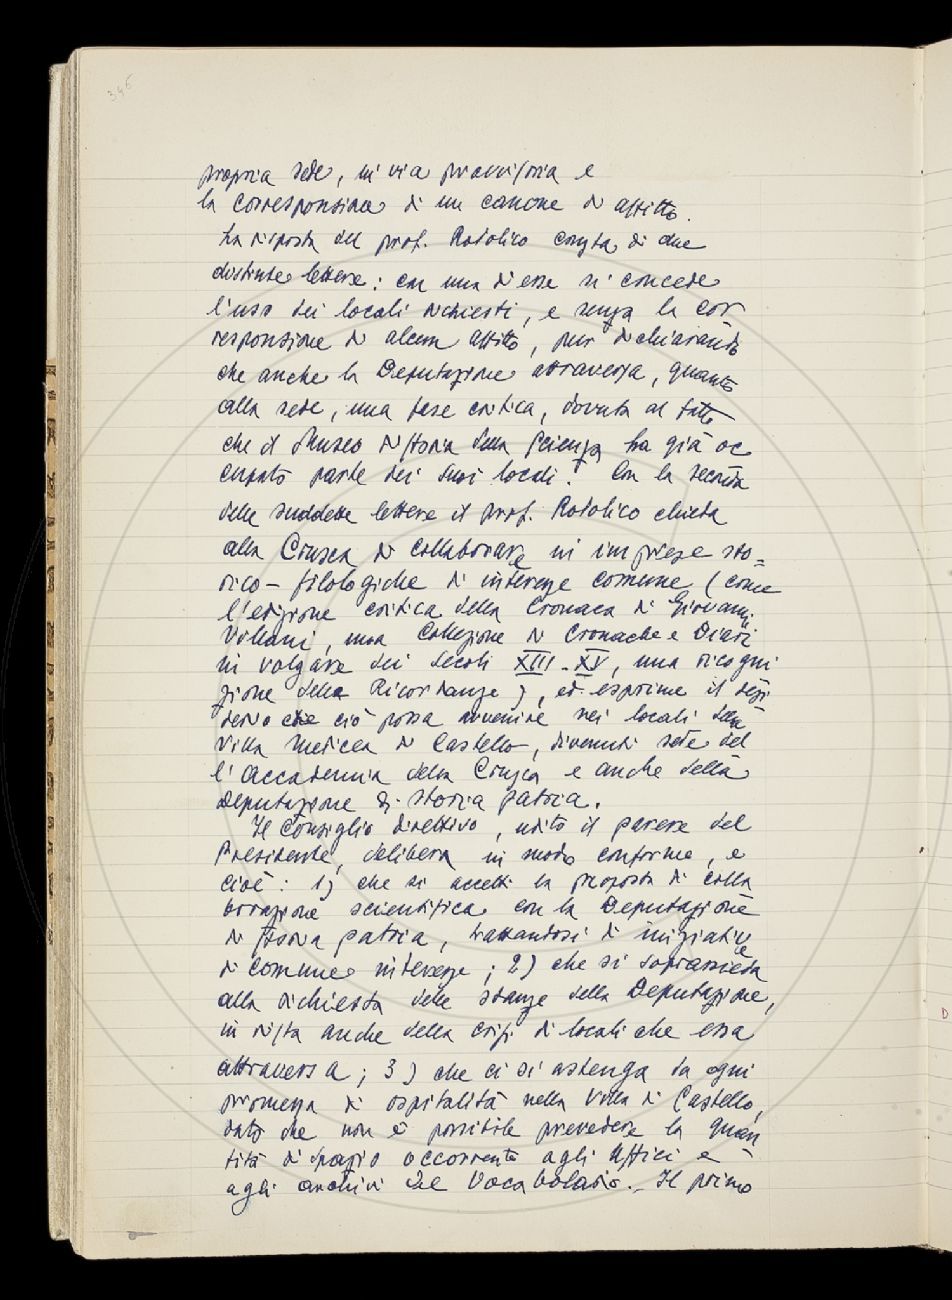 346
propria sede, in via provvisoria e
la corresponsione di un canone di affitto.
La risposta del prof. Rodolico consta di due
distinte lettere: con una d'esse si concede
l'uso dei locali richiesti, e senza la cor
responsione di alcun affitto, pur dichiarando
che anche la Deputazione attraversa, quanto
alla sede, una fase critica, dovuta al fatto
che il Museo di storia della Scienza ha già oc
cupato parte dei suoi locali. Con la seconda
delle suddette lettere il prof. Rodolico chieda
alla Crusca di collaborare in imprese sto=
rico-filologiche di interesse comune (come
l'edizione critica della Cronaca di Giovanni
Villani, una Collezione di Cronache e Diari
in volgare dei secoli XIII-XV, una ricogni
zione delle Ricordanze), ed esprime il desi
derio che ciò possa avvenire nei locali della
Villa Medicea di Castello, divenuti sede del
l'Accademia della Crusca e anche della
Deputazione di storia patria.
Il Consiglio direttivo, udito il parere del
Presidente, delibera in modo conforme, e
cioè: 1) che si accetti la proposta di colla
borazione scientifica con la Deputazione
di storia patria, trattandosi di iniziative
di comune interesse; 2) che si soprassieda
alla richiesta delle stanze della Deputazione,
in vista anche della crisi di locali che essa
attraversa; 3) che ci si astenga da ogni
promessa di ospitalità nella Villa di Castello,
dato che non è possibile prevedere la quan
tità di spazio occorrente agli Uffici e
agli archivi del Vocabolario. Il primo